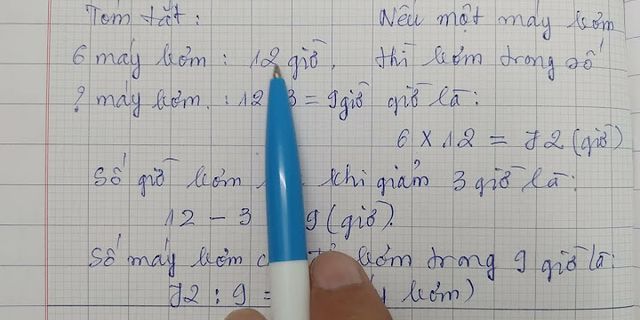 Tóm tắt:
6 máy bơm : 12 giờ.
? máy bơm. : 12 3 = 9 giờ
Nếu một máy bơm
thì bơm trong số
giờ là:
6 × 12 = 72 (giờ)
Số giờ bơm khi giảm 3 giờ là:
12 - 3 9 (giờ).
Số máy bơm bơm trong 9 giờ là:
72 : 9 = bơm)